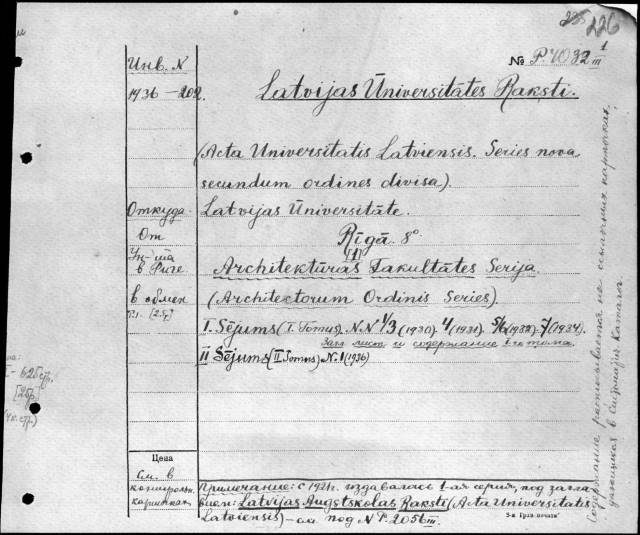 226
№ Р.4032 1/III
Инв. N
1936 — 202.
Latvijas Ūniversitātes Raksti.
(Acta Universitatis Latviensis. Series nova
secundum ordines divisa.)
Откуда
Latvijas Ūniversitāte.
От
Rīgā. 8°
Ун-та
в Риге
Architektūras Fakultātes Serija.
в обмен
(Architectorum Ordinis Series).
I. Sējums (I. Tomus), N.N 1/3 (1930). 4 (1931). 5/6 (1932)-7 (1934).
Загл. лист и содержание I-го тома.
II Sējums (II Tomus) N. 1 (1936)
Цена
См. в
контрольн.
карточках
Примечание: с 1921г. издавалась 1-ая серия, под загла-
вием: Latvijas Augstskolas Raksti (Acta Universitatis
Latviensis) — см. под N Р. 2056 III.
3-я Гран. печати
Содержание расписывается на ссылочных карточках,